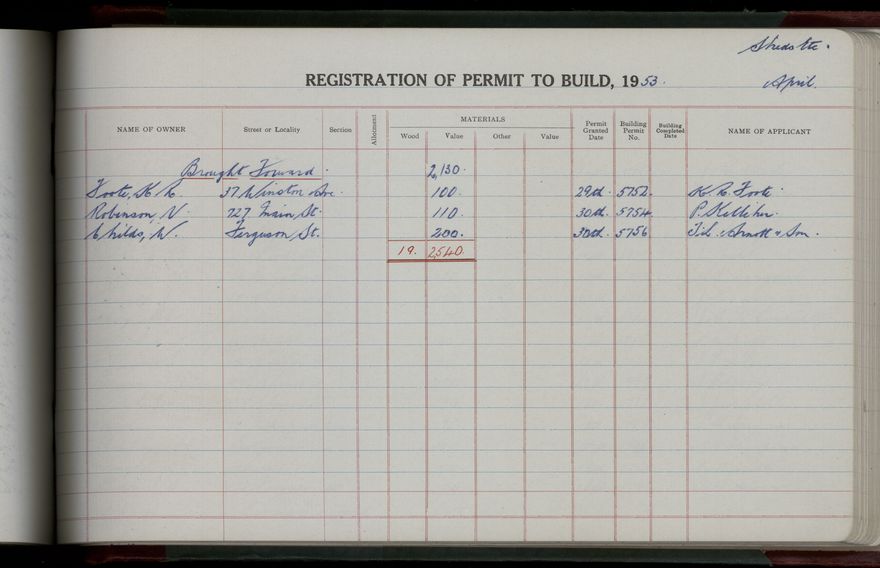 Sheds etc.
REGISTRATION OF PERMIT TO BUILD, 1953.
April.
NAME OF OWNER Street or Locality Section Allotment MATERIALS Permit Granted Date Building Permit No. Building Completed Date NAME OF APPLICANT
Wood Value Other Value
Brought Forward. 2,130.
Foote, K. C. 37 Winston Ave. 100. 29th. 5752. K. C. Foote.
Robinson, V. 727 Main St. 110. 30th. 5754. P. Kelliher.
Childs, W. Ferguson St. 200. 30th. 5756 Arnott & Son.
19. 2540.